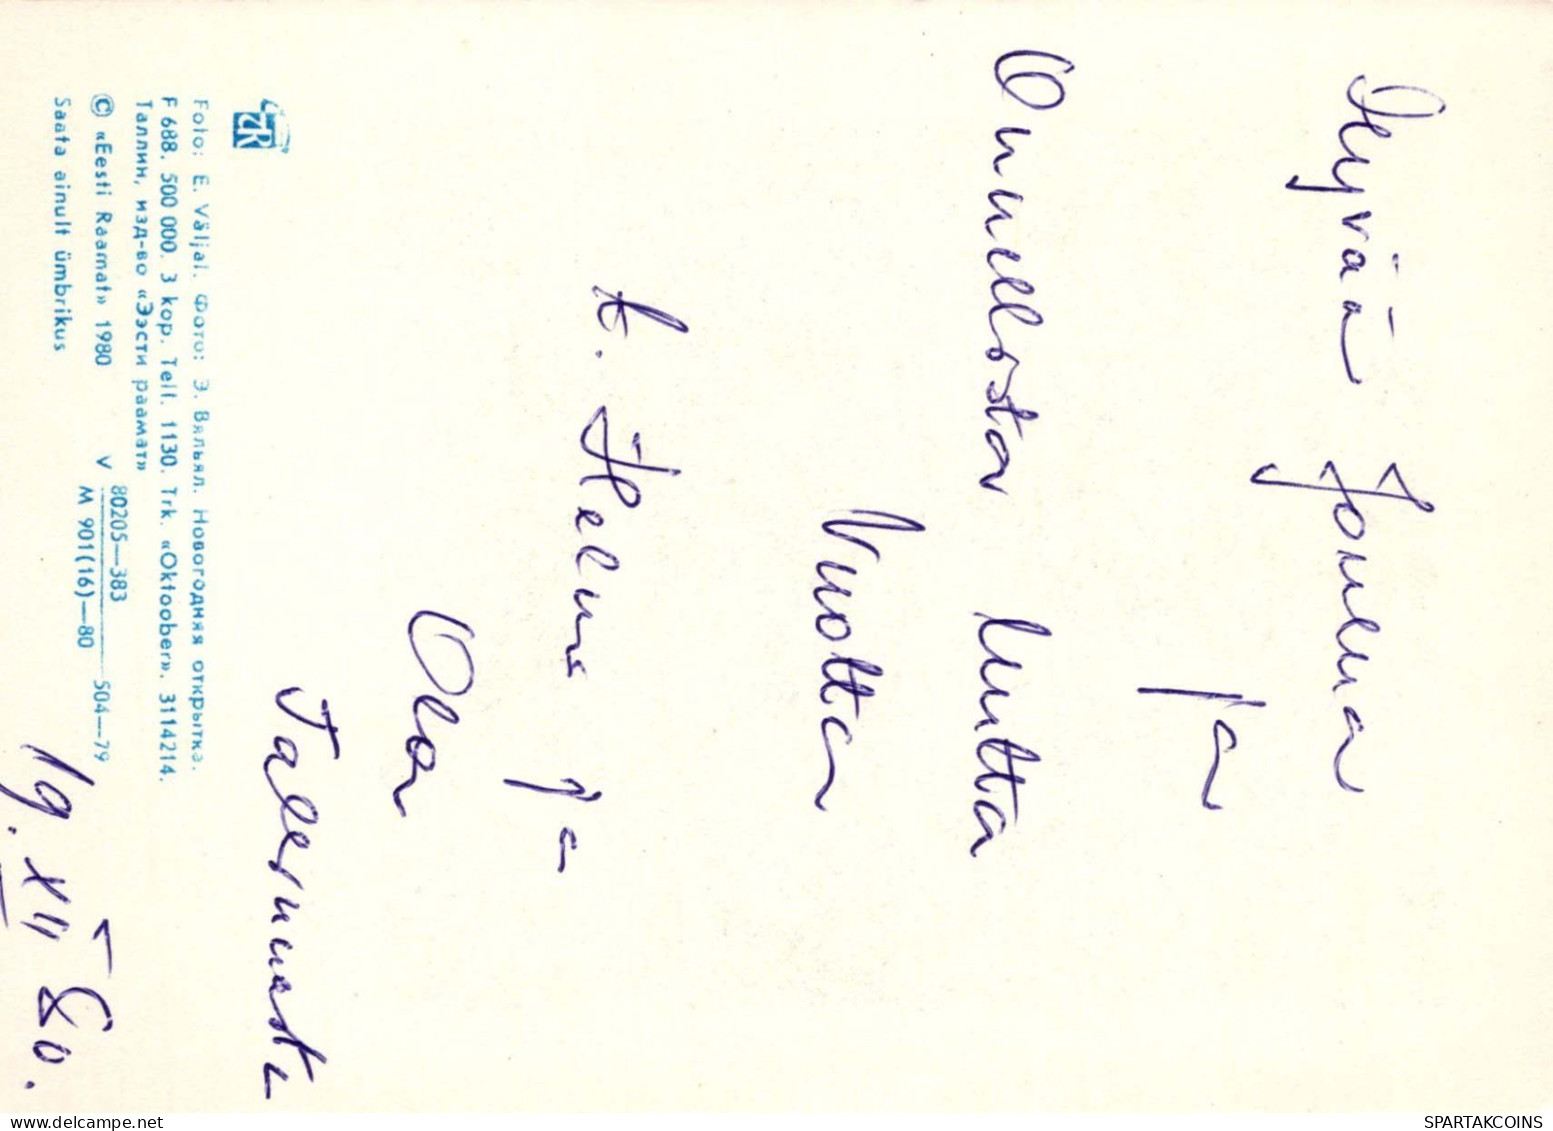 Hyvää Joulua
ja
Onnellista Uutta
Vuotta
t. Helmi ja
Ola
Talinnasta
19. XII 80.
ER
Foto: E. Väljal. Фото: Э. Вяльял. Новогодняя открытка.
F 688. 500 000. 3 kop. Tell. 1130. Trk. «Oktoober». 3114214.
Таллин, изд-во «Ээсти раамат»
© «Eesti Raamat» 1980 V 80205—383 504—79
M 901(16)—80
Saata ainult ümbrikus
hipwee.net
SPARTAKCOINS